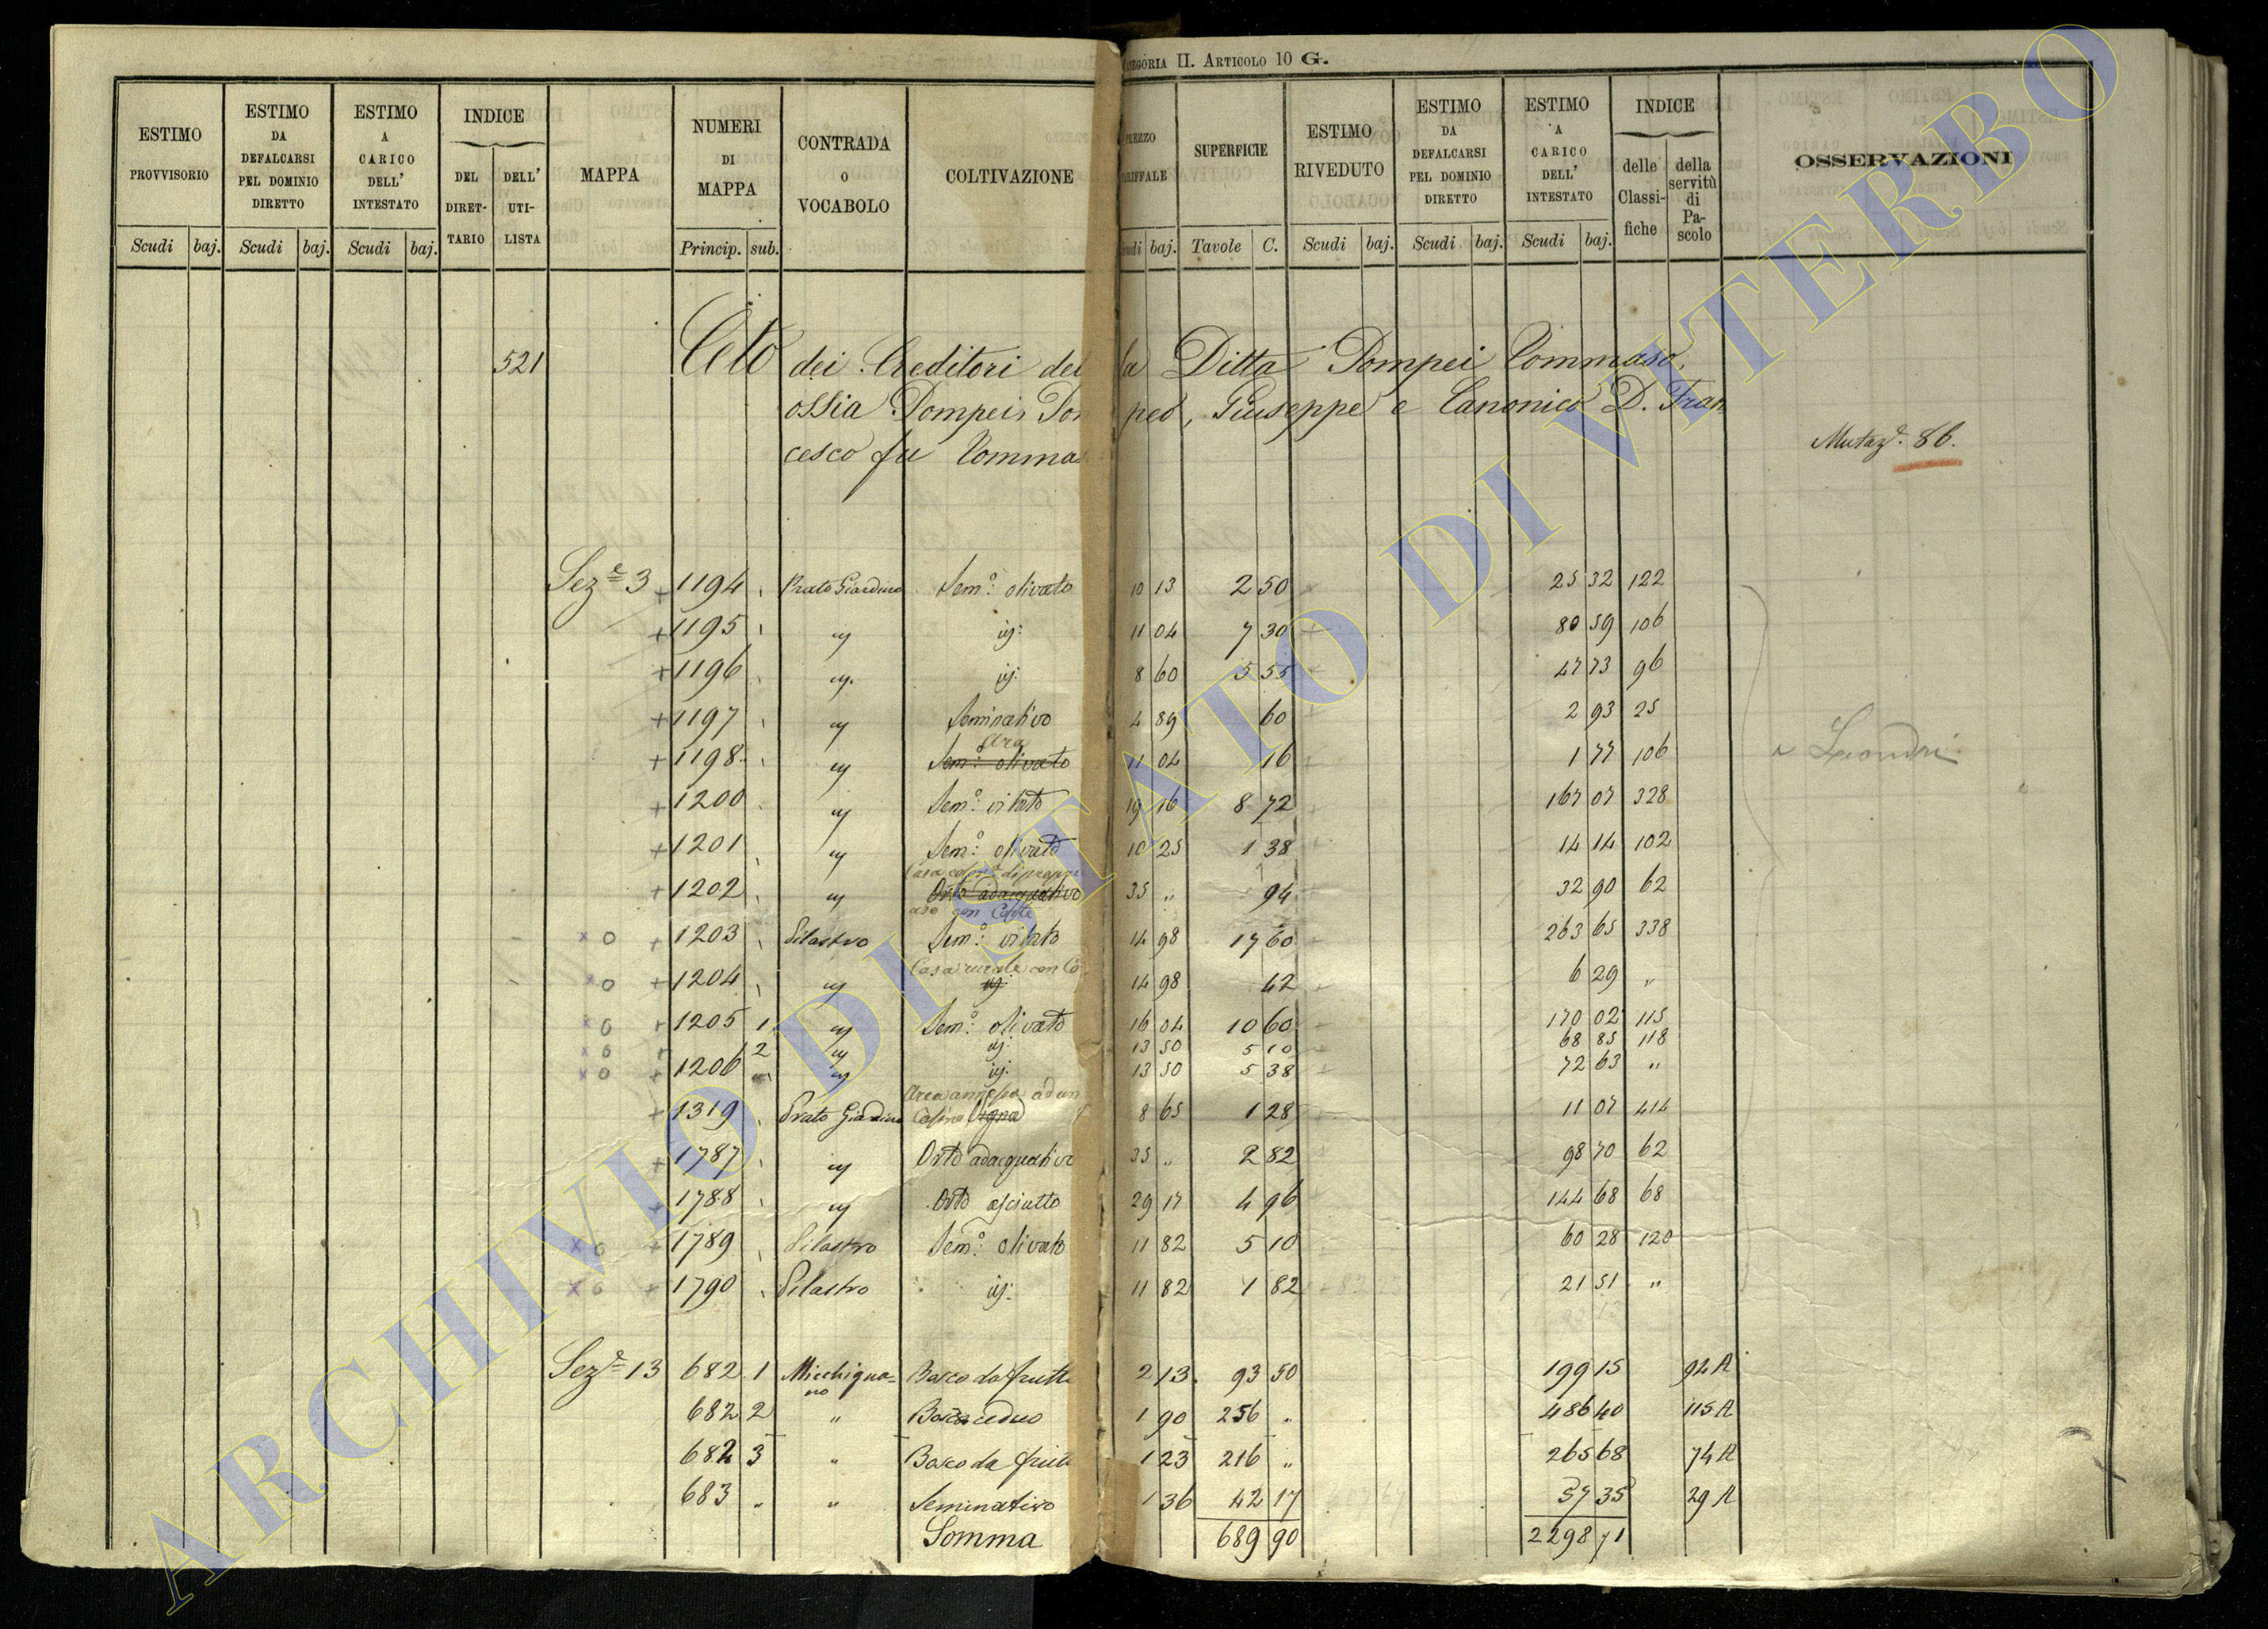 CATEGORIA II. ARTICOLO 10 G.
ESTIMO PROVVISORIO | ESTIMO DA DEFALCARSI PEL DOMINIO DIRETTO | ESTIMO A CARICO DELL' INTESTATO | INDICE | MAPPA | NUMERI DI MAPPA | CONTRADA O VOCABOLO | COLTIVAZIONE | PREZZO TARIFFALE | SUPERFICIE | ESTIMO RIVEDUTO | ESTIMO DA DEFALCARSI PEL DOMINIO DIRETTO | ESTIMO A CARICO DELL' INTESTATO | INDICE | OSSERVAZIONI
DEL DIRET-TARIO | DELL' UTI-LISTA | delle Classi-fiche | della servitù di Pa-scolo
Scudi | baj. | Scudi | baj. | Scudi | baj. | Princip. | sub. | Scudi | baj. | Tavole | C. | Scudi | baj. | Scudi | baj. | Scudi | baj.
521 Ceto dei Creditori della Ditta Pompei Tommaso,
ossia Pompei Pompeo, Giuseppe e Canonico D. Fran
cesco fu Tommaso
Mutaz.e 86.
Sez.e 3 + 1194 Prato Giardino Sem.o olivato 10 13 2 50 25 32 122
+ 1195 " id: 11 04 7 30 80 59 106
+ 1196 " id: 8 60 5 55 47 73 96
+ 1197 " Seminativo 4 89 60 2 93 25
Area
+ 1198 " Sem.o olivato 11 04 16 1 77 106
a Leandri
+ 1200 " Sem.o vitato 19 16 8 72 167 07 328
+ 1201 " Sem.o olivato 10 25 1 38 14 14 102
Casa
+ 1202 " Orto adacquativo 35 " 94 32 90 62
uso con Corte
x o + 1203 Pilastro Sem.o vitato 14 98 17 60 263 65 338
Casa rurale con Co
x o + 1204 " id: 14 98 42 6 29 "
x o + 1205 1 " Sem.o olivato 16 04 10 60 170 02 115
x o + 2 " id: 13 50 5 10 68 85 118
x o + 1206 " id: 13 50 5 38 72 63 "
Area annessa ad un
+ 1319 Prato Giardino Casino Vigna 8 65 1 28 11 07 414
+ 1787 " Orto adacquativo 35 " 2 82 98 70 62
+ 1788 " Orto asciutto 29 17 4 96 144 68 68
x o + 1789 Pilastro Sem.o olivato 11 82 5 10 60 28 120
x o + 1790 Pilastro id: 11 82 1 82 21 51 "
Sez.e 13 682 1 Micchignano Bosco da frutto 2 13 93 50 199 15 92 A
682 2 " Bosco ceduo 1 90 256 " 486 40 115 A
682 3 " Bosco da frutto 1 23 216 " 265 68 74 A
683 " " Seminativo 1 36 42 17 57 35 29 A
Somma 689 90 2298 71
ARCHIVIO DI STATO DI VITERBO